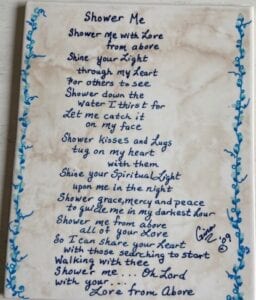 Shower Me
Shower me with Love
from above
Shine your Light
through my Heart
For others to see
Shower down the
Water I thirst for
Let me catch it
on my face
Shower kisses and Hugs
tug on my heart
with them
Shine your Spiritual Light
upon me in the night
Shower grace, mercy and peace
to guide me in my darkest hour
Shower me from above
all of your Love
So I can share your Heart
with those searching to start
Walking with thee
Shower me... Oh Lord
with your...
Love from Above
'09
©